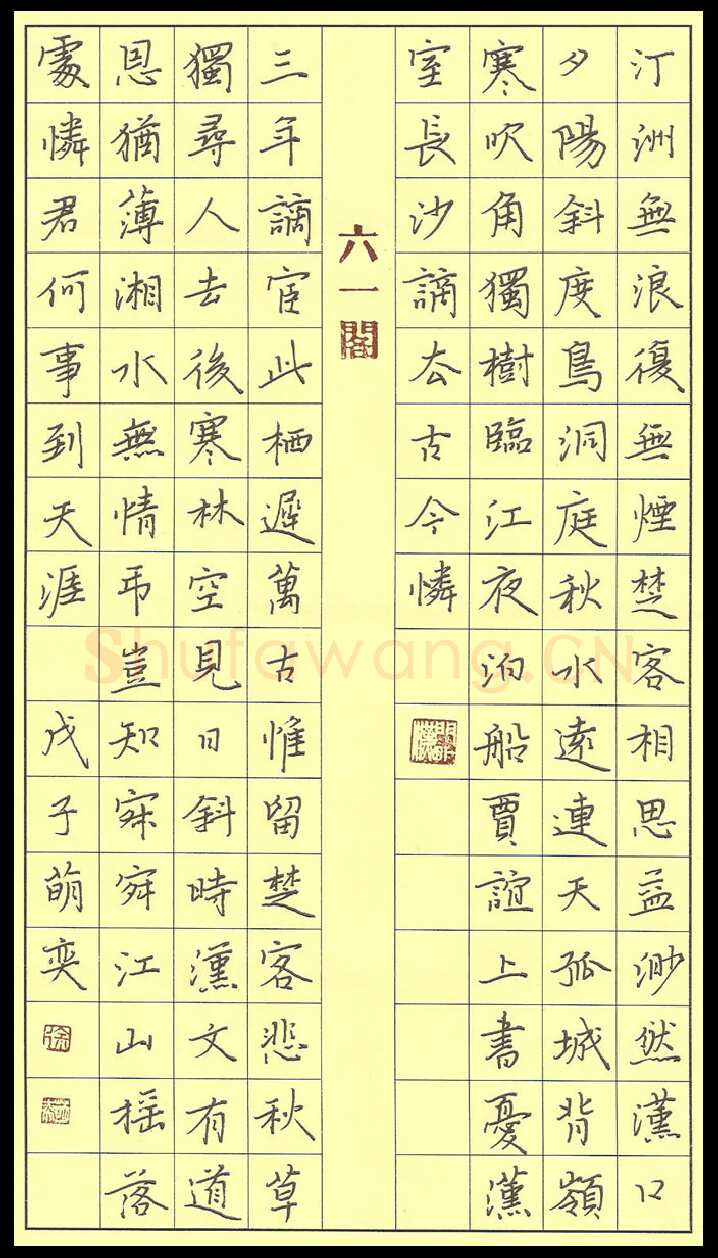 汀洲無浪復無煙楚客相思益渺然漢口
夕陽斜度鳥洞庭秋水遠連天孤城背嶺
寒吹角獨樹臨江夜泊船賈誼上書憂漢
室長沙謫去古今憐
六一閣
三年謫宦此栖遲萬古惟留楚客悲秋草
獨尋人去後寒林空見日斜時漢文有道
恩猶薄湘水無情弔豈知寂寂江山搖落
處憐君何事到天涯 戊子萌奕
徐
Shufawang.CN